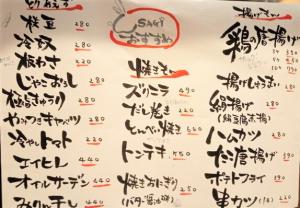 とりあえず
枝豆 280
冷奴 280
板わさ 220
じゃこおろし 280
280
やみつきキャベツ 280
冷やしトマト 220
エイヒレ 440
オイルサーデン 440
みりん干し
USAGI
おすすめ
焼きもん
ズリニラ 490
だし巻き
とんぺい焼き
トンテキ 550
焼きおにぎり 250
(バター醤油味)
揚げもん
鶏唐揚げ
揚げしゅうまい 280
絹揚げ 280
(絹豆腐素揚)
ハムカツ 280
たこ唐揚げ 390
ポテトフライ 390
串カツ 220